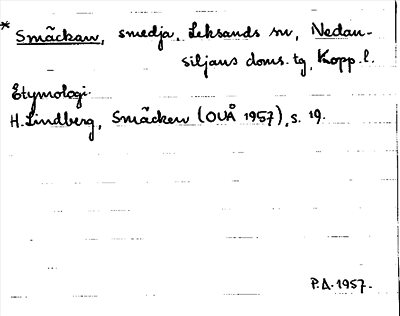 * Smäckan, smedja, Leksands sn, Nedan-
siljans doms. tg, Kopp. l.
Etymologi.
H. Lindberg, Smäcken (OUÅ 1957), s. 19.
P.A. 1957.